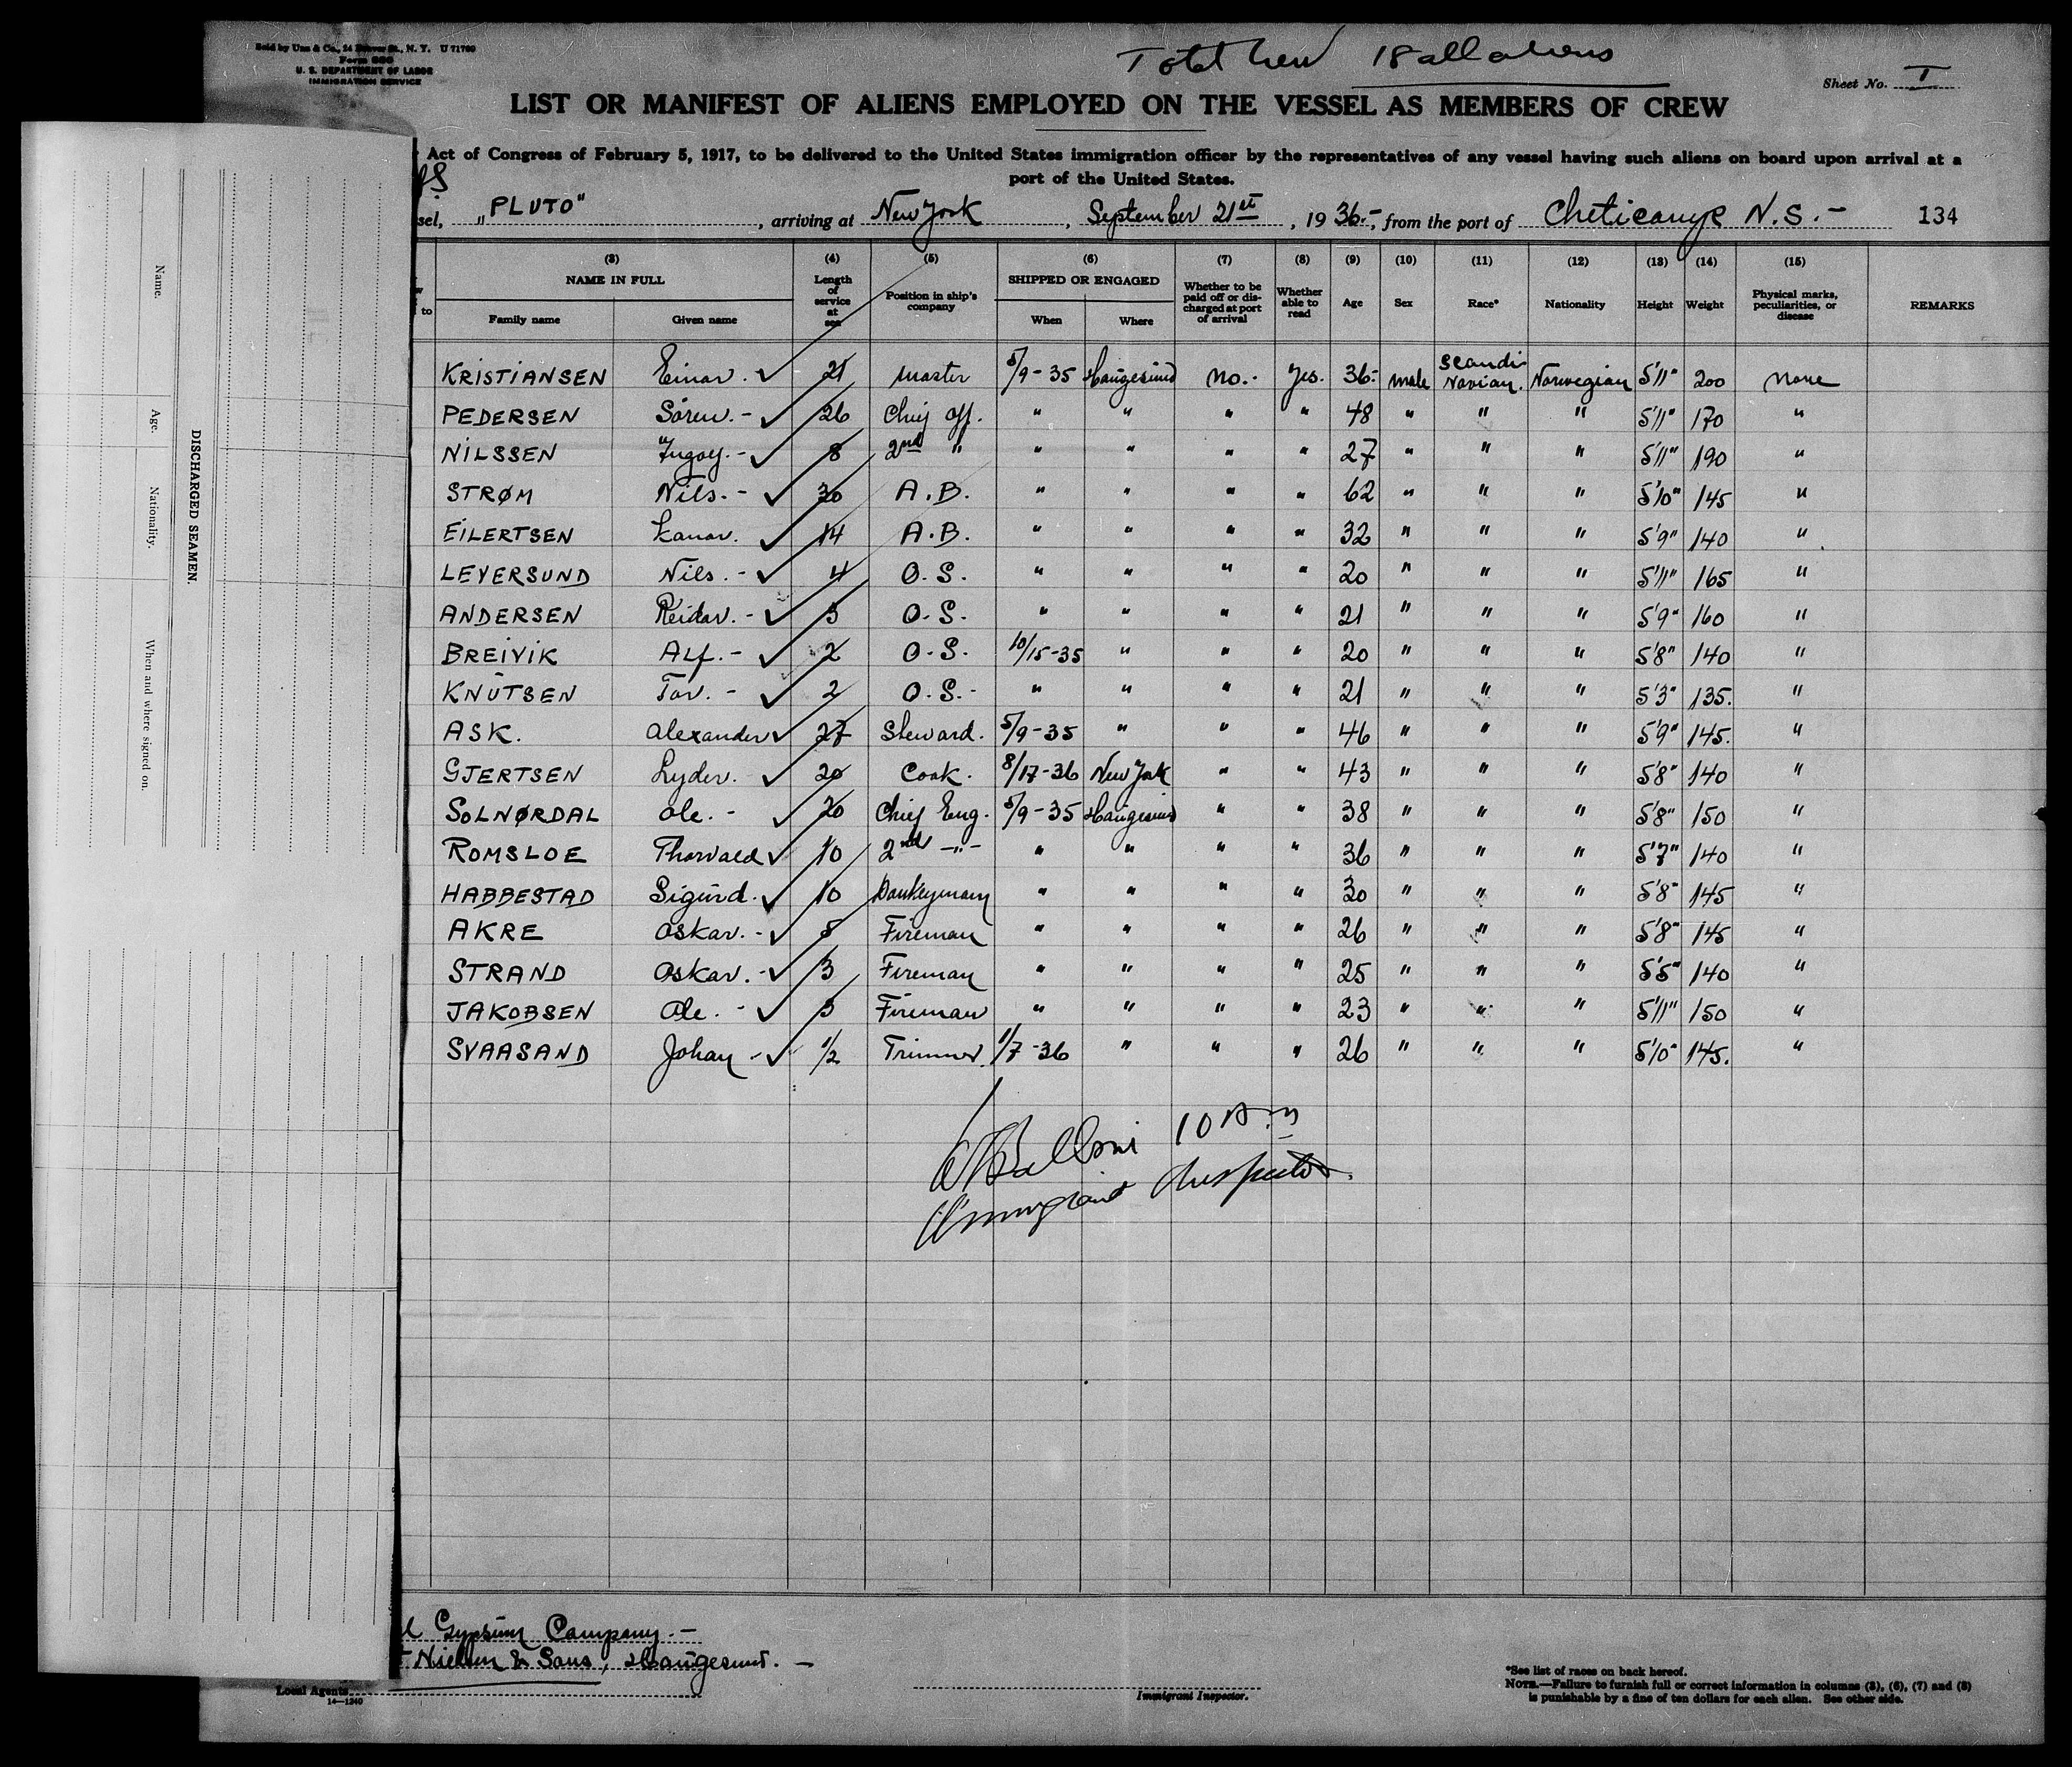 Sold by Unz & Co., 24 Beaver St., N. Y. U 71700
Form 680
U. S. DEPARTMENT OF LABOR
IMMIGRATION SERVICE
Total Crew 18 all aliens
Sheet No. I
LIST OR MANIFEST OF ALIENS EMPLOYED ON THE VESSEL AS MEMBERS OF CREW
Act of Congress of February 5, 1917, to be delivered to the United States immigration officer by the representatives of any vessel having such aliens on board upon arrival at a
port of the United States.
sel, "PLUTO", arriving at New York, September 21st, 1936.-, from the port of N.S.- 134
(3) (4) (5) (6) (7) (8) (9) (10) (11) (12) (13) (14) (15)
NAME IN FULL Length of service at sea Position in ship's company SHIPPED OR ENGAGED Whether to be paid off or discharged at port of arrival Whether able to read Age Sex Race* Nationality Height Weight Physical marks, peculiarities, or disease REMARKS
to Family name Given name When Where
KRISTIANSEN Einar. 21 Master 5/9-35 Haugesund No.- Yes. 36.- male Scandinavian. Norwegian 5'11" 200 None
PEDERSEN Sören.- 26 Chief Off. " " " " 48 " " " 5'11" 170 "
NILSSEN 8 2nd " " " " " 27 " " " 5'11" 190 "
STRØM Nils.- 30 A.B. " " " " 62 " " " 5'10" 145 "
EILERTSEN 14 A.B. " " " " 32 " " " 5'9" 140 "
LEVERSUND Nils.- 4 O.S. " " " " 20 " " " 5'11" 165 "
ANDERSEN Reidar.- 3 O.S. " " " " 21 " " " 5'9" 160 "
BREIVIK Alf.- 2 O.S. 10/15-35 " " " 20 " " " 5'8" 140 "
KNUTSEN Tor.- 2 O.S.- " " " " 21 " " " 5'3" 135. "
ASK. Alexander 27 Steward. 5/9-35 " " " 46 " " " 5'9" 145. "
GJERTSEN Lyder. 20 Cook. 8/17-36 New York " " 43 " " " 5'8" 140 "
SOLNØRDAL Ole.- 20 Chief Eng. 5/9-35 Haugesund " " 38 " " " 5'8" 150 "
ROMSLOE Thorvald 10 2nd -"- " " " " 36 " " " 5'7" 140 "
HABBESTAD Sigurd. 10 Donkeyman " " " " 30 " " " 5'8" 145 "
AKRE Oskar.- 8 Fireman " " " " 26 " " " 5'8" 145 "
STRAND Oskar.- 3 Fireman " " " " 25 " " " 5'5" 140 "
JAKOBSEN Ole.- 3 Fireman " " " " 23 " " " 5'11" 150 "
SVAASAND Johan- 1/2 Trimmer. 1/7-36 " " " 26 " " " 5'10" 145. "
10 AM
Immigrant Inspector.
Gypsum Company.-
Nielsen & Sons, Haugesund.-
Local Agents
14—1240
Immigrant Inspector.
*See list of races on back hereof.
NOTE.—Failure to furnish full or correct information in columns (3), (6), (7) and (8)
is punishable by a fine of ten dollars for each alien. See other side.
DISCHARGED SEAMEN.
Name. Age. Nationality. When and where signed on.